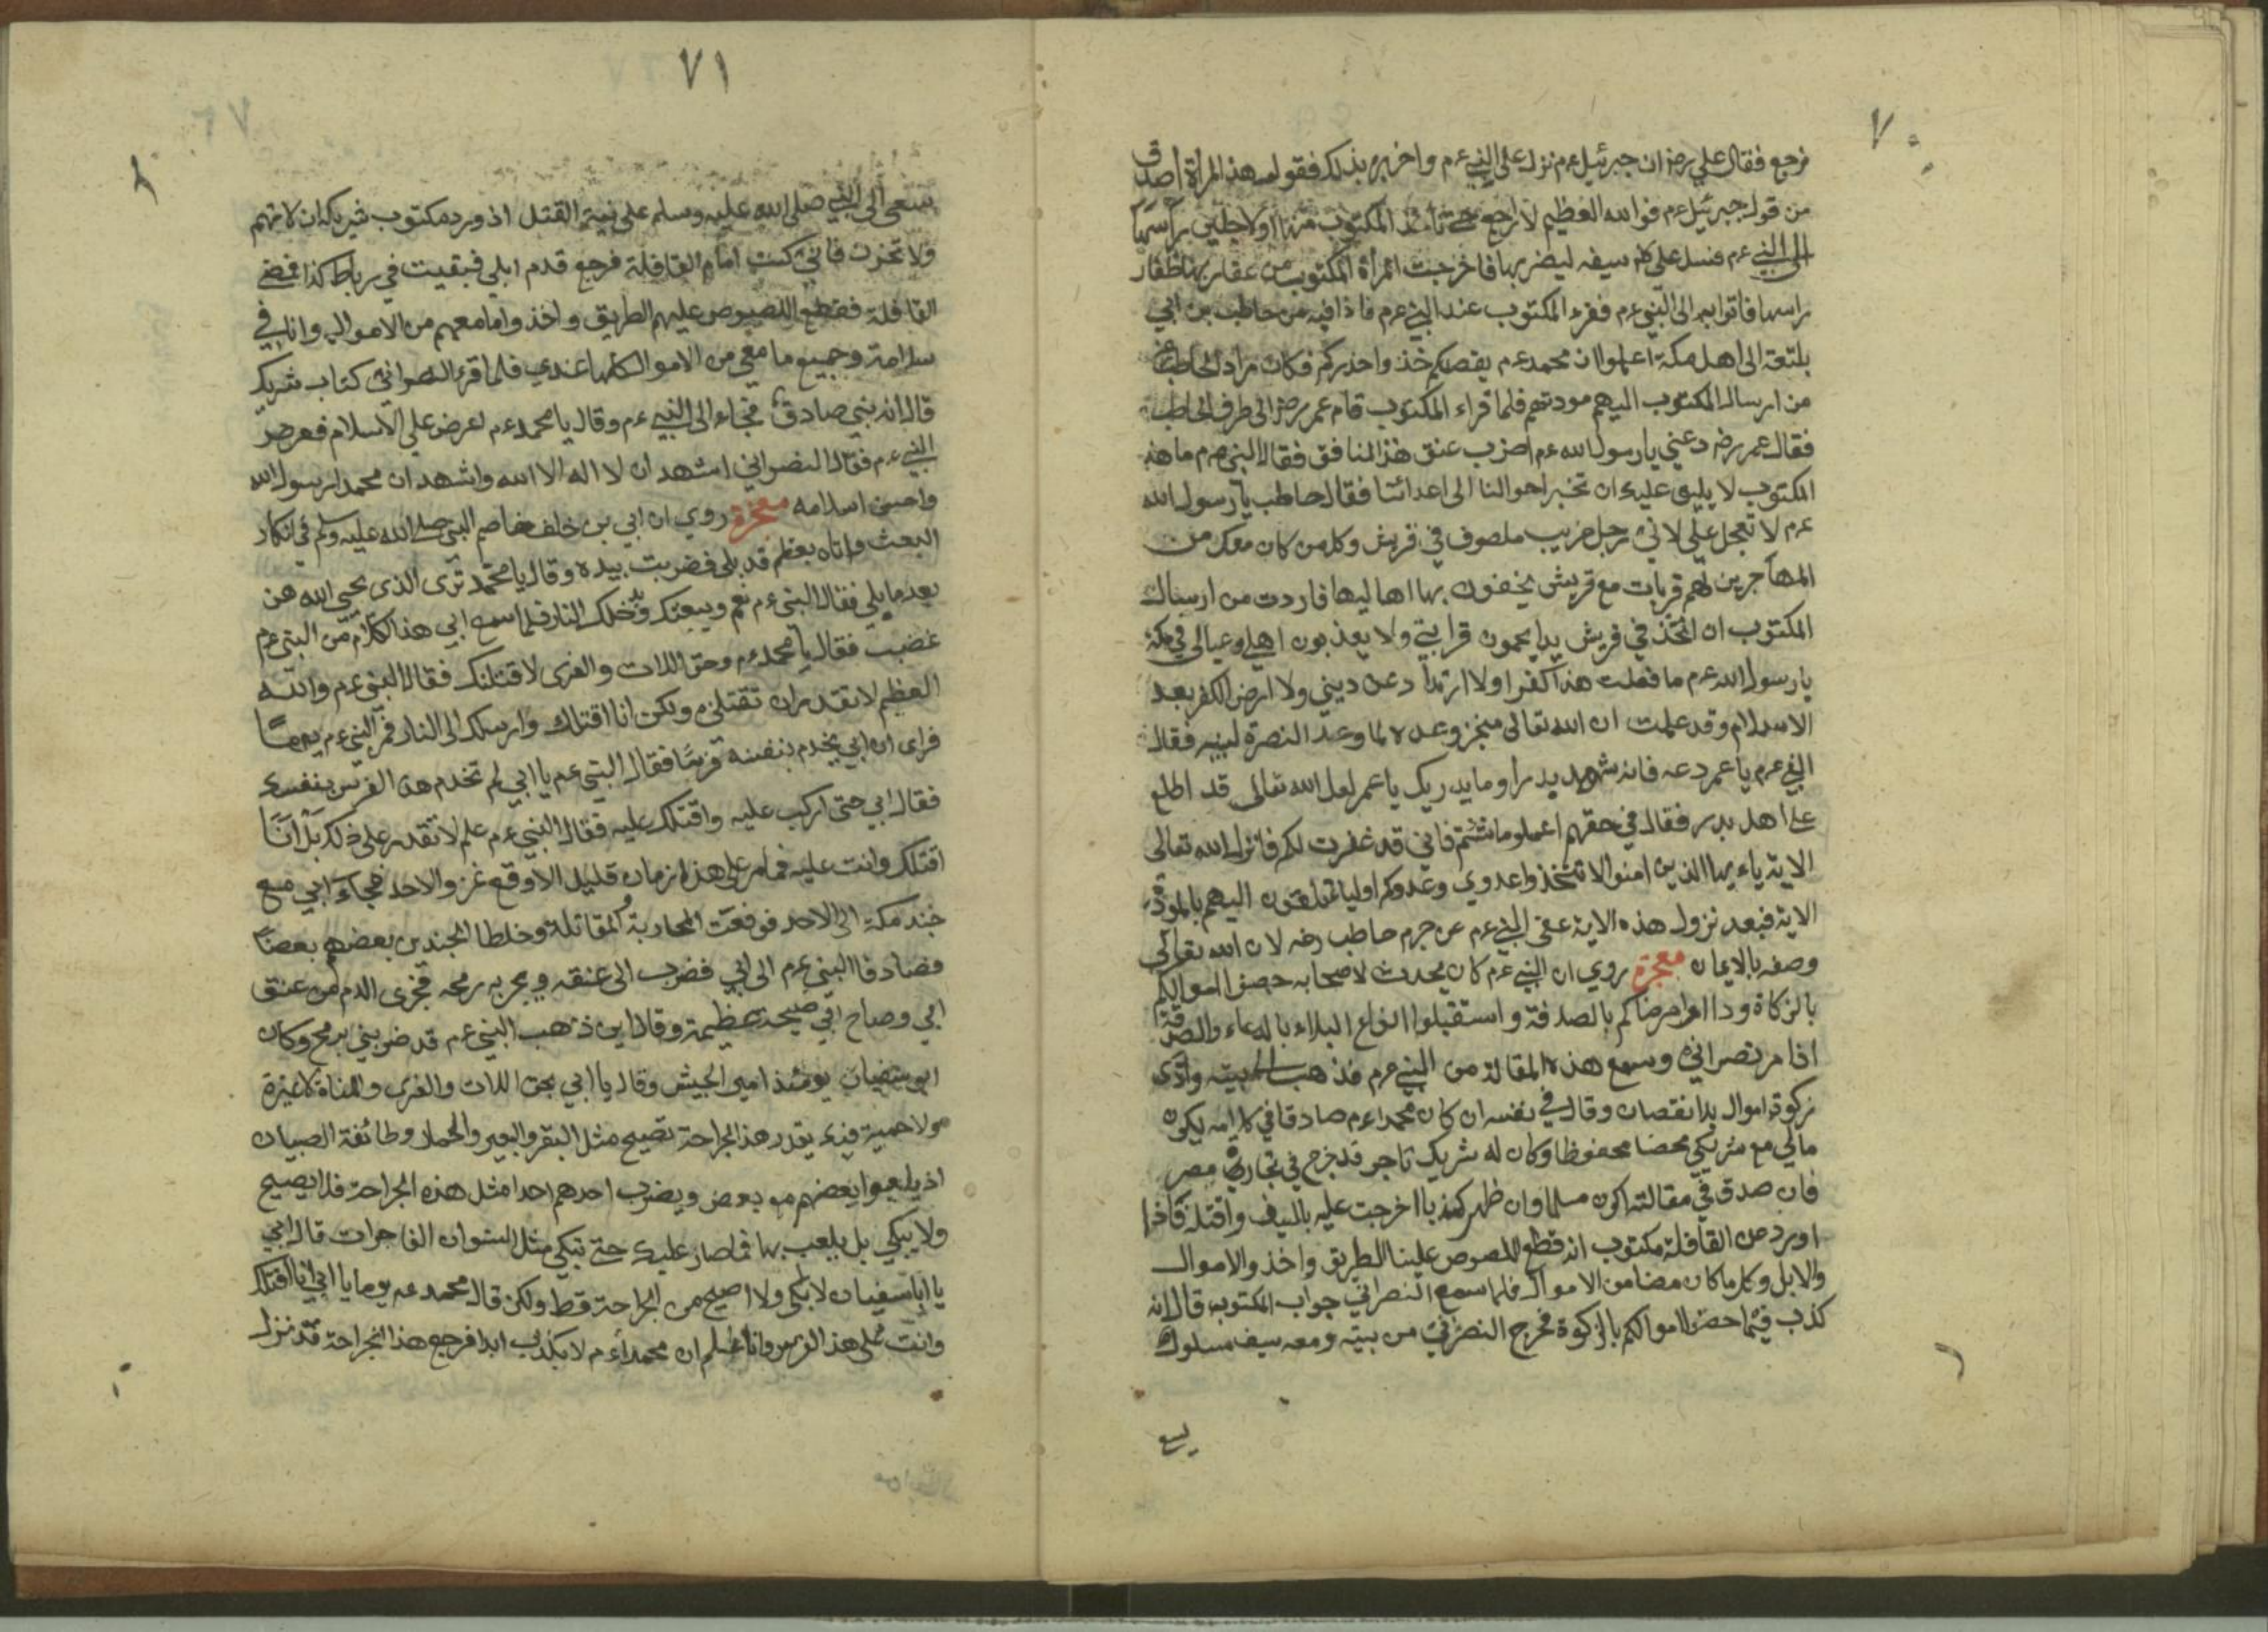 ٧٠
فرجع فقال علي رضه ان جبرئيل ءم نزل على النبي ءم واخبره بذلك فقوله هذا المرأة اصدق
من قول جبرئيل ءم فوالله العظيم لا ارجع حتى المكتوب منها اولاجلين برأسها
الى النبي ءم فسل علي كم سيفه ليضربها فاخرجت المرأة المكتوب من عقاربها ظفار
راسها فاتوا به الى النبي ءم فقرء المكتوب عند النبي ءم فاذا فيه من حاطب بن ابي
بلتعة الى اهل مكة اعلموا ان محمد ءم يقصدكم خذوا حذركم فكان مراد الحاطب
من ارسال المكتوب اليهم مودتهم فلما قراء المكتوب قام عمر رضه الى طرف الحاطب
فقال عمر رضه دعني يا رسول الله ءم اضرب عنق هذا المنافق فقال النبي ءم ما هذه
المكتوب لا يليق عليك ان تخبر احوالنا الى اعدائنا فقال حاطب يا رسول الله
ءم لا تعجل علي لاني رجل غريب ملصوف في قريش وكل من كان معك من
المهاجرين لهم قربات مع قريش يحفضون بها اهاليها فاردت من ارسال
المكتوب ان اتخذ في قريش يدا يحمون قرابتي ولا يعذبون اهلي وعيالي في مكة
يا رسول الله ءم ما فعلت هذا كفرا ولا ارتدادعن ديني ولا ارض الكفر بعد
الاسلام وقد علمت ان الله تعالى منجز وعده لما وعد النصرة لنبيه فقال
النبي ءم يا عمر دعه فانه شهد بدرا وما يدريك يا عمر لعل الله تعالى قد اطلع
على اهل بدر فقال في حقهم اعملو ما شئتم فاني قد غفرت لكم فانزل الله تعالى
الاية ياءيها الذين امنوا لا تتخذوا عدوي وعدوكم اولياء تلقون اليهم بالمودة
الاية فبعد نزول هذه الاية عفى النبي ءم عن جرم حاطب رضه لان الله تعالى
وصفه بالايمان معجزة روي ان النبي ءم كان يحدث لاصحابه حصنوا اموالكم
بالزكاة وداووا مرضاكم بالصدقة واستقبلوا انواع البلاء بالدعاء والصدقة
اذا مر نصراني وسمع هذه المقالة من النبي ءم فذهب الى بيته وادى
زكوة اموال بلا نقصان وقال في نفسه ان كان محمدا ءم صادقا في كلامه يكون
مالي مع شريكي محصنا محفوظا وكان له شريك تاجر قد خرج في تجارة مصر
فان صدق في مقالته اكون مسلما وان ظهر كذبا اخرجت عليه بالسيف واقتله فاذا
اورد من القافلة مكتوب انه قطع اللصوص علينا الطريق واخذوا الاموال
والابل وكل ما كان معنا من الاموال فلما سمع النصراني جواب المكتوب قال انه
كذب فيما حصنوا اموالكم بالزكوة فخرج النصراني من بيته ومعه سيف مسلولة
يسع
٧١
يسعى الى النبي صلى الله عليه وسلم على نية القتل اذ ورد مكتوب شريكه ان لا تهم
ولا تحزن فاني كنت امام القافلة فرجع قدم ابلي فبقيت في رباط كذا فمضى
القافلة فقطع اللصوص عليهم الطريق واخذوا ما معهم من الاموال وانا في
سلامة وجميع ما معي من الاموال كلها عندي فلما قرء النصراني كتاب شريك
قال انه نبي صادق فجاء الى النبي ءم وقال يا محمد ءم اعرض علي الاسلام فعرض
النبي ءم فقال النصراني اشهد ان لا اله الا الله واشهد ان محمدا رسول الله
واحسن اسلامه معجزة روي ان ابي بن خلف خاصم النبي صلى الله عليه وسلم في انكار
البعث واتاه بعظم قد بلى فضربت بيده وقال يا محمد ترى الذي يحيي الله هن
بعد ما بلي فقال النبي ءم نعم ويبعثك ويدخلك النار فلما سمع ابي هذا الكلام من النبي ءم
غضب فقال يا محمد ءم وحق اللات والعزى لاقتلنك فقال النبي ءم والله
العظيم لا تقدر ان تقتلني ولكن انا اقتلك وارسلك الى النار فمر النبي ءم يوما
فراى ان ابي يخدم بنفسه فرسا فقال النبي ءم يا ابي لم تخدم هذا الفرس بنفسك
فقال ابي حتى اركب عليه واقتلك عليه فقال النبي ءم علم لا تقدر على ذلك بل انا
اقتلك وانت عليه فما مر على هذا زمان قليل الا وقع غزو الاحد فجاء ابي مع
جند مكة الى الاحد فوقعت المحاربة والمقاتلة وخلطا الجندين بعضهم بعضا
فصادفا النبي ءم الى ابي فضرب الى عنقه ويجر به رمحه فجرى الدم من عنق
ابي وصاح ابي صيحة عظيمة وقال اين ذهب النبي ءم قد ضربني برمح وكان
ابو سفيان يومئذ امير الجيش وقال يا ابي بحق اللات والعزى والمناة لا غيرة
ولا حمية فيك بقدر هذا الجراحة تصيح مثل البقر والبعير والحمار وطائفة الصبيان
اذ يلعبوا بعضهم مع بعض ويضرب احدهم احدا مثل هذه الجراحة فلا يصيح
ولا يبكي بل يلعب بها فما صار عليك حتى تبكي مثل النسوان الفاجرات قال ابي
يا ابا سفيان لا ابكى ولا اصيح من الجراحة قط ولكن قال محمد عم يوما يا ابي انا اقتلك
وانت على هذا الفرس وانا اعلم ان محمدا ءم لا يكذب ابدا فرجع هذا الجراحة قد نزل